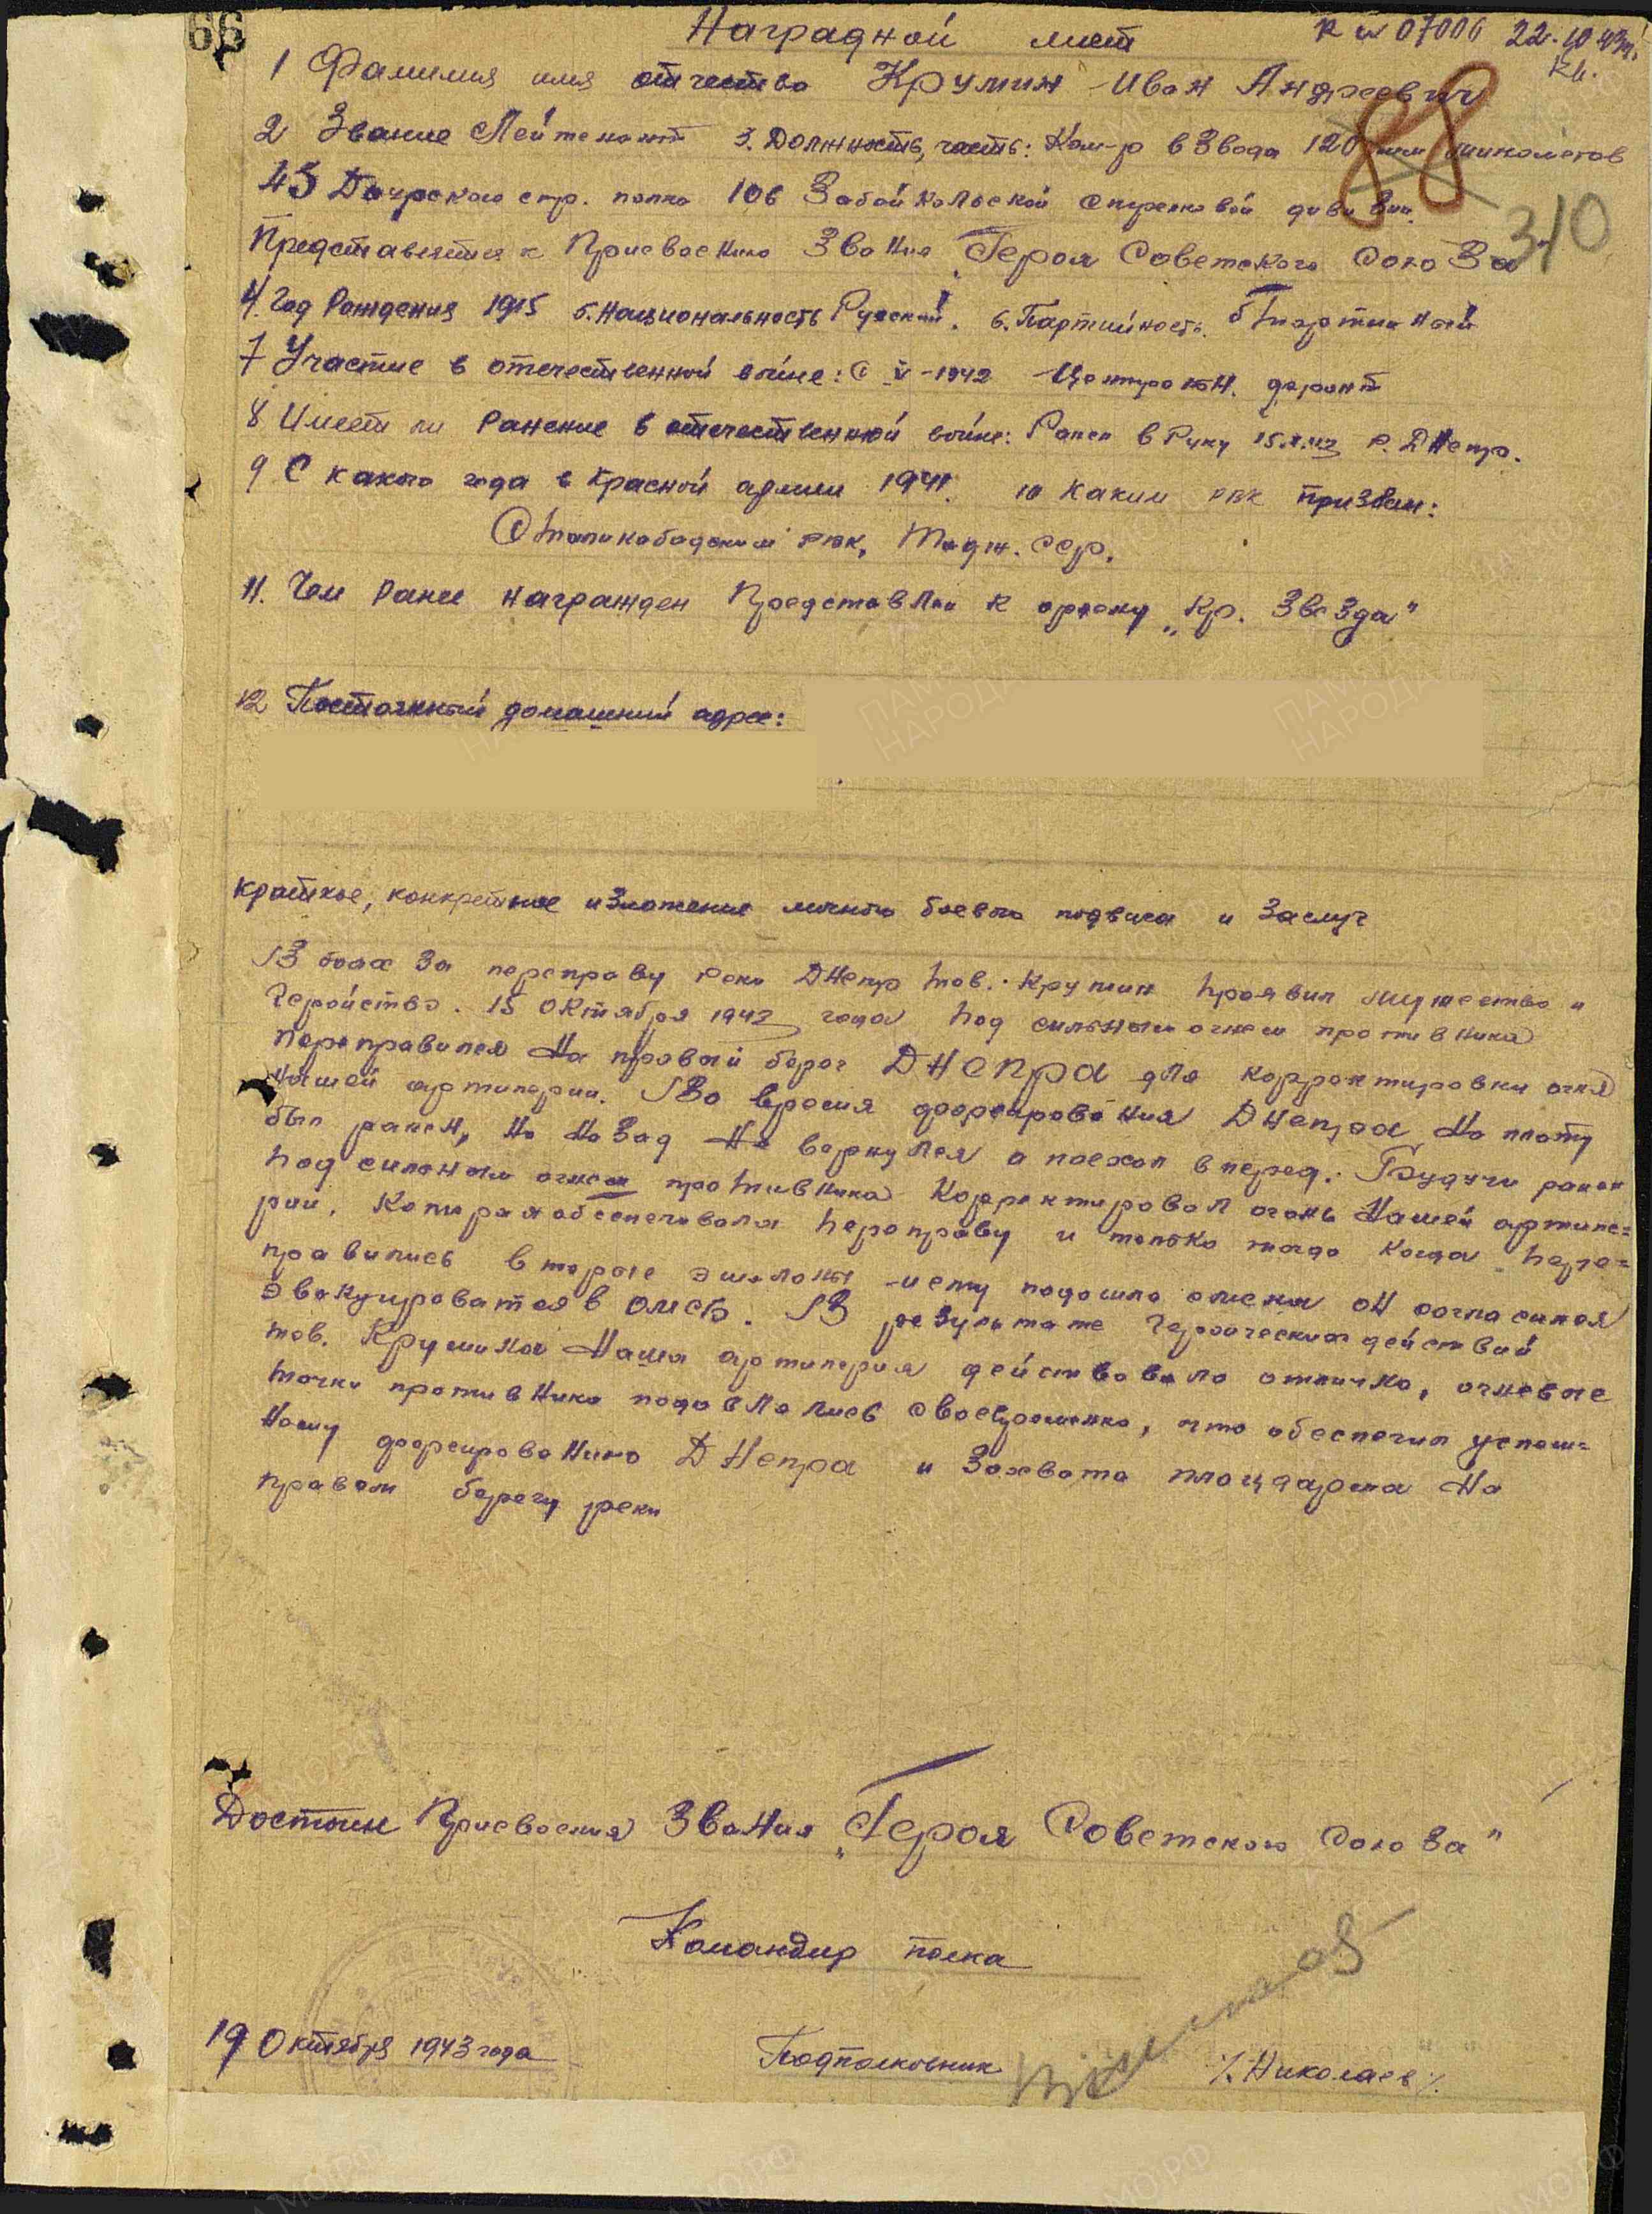 66
Наградной лист
к № 07006 22.10.43г.
88
310
1 Фамилия имя отчество Крумин Иван Андреевич
2 Звание Лейтенант 3. Должность, часть: Ком-р взвода 120 мм минометов
43 Даурского стр. полка 106 Забайкальской стрелковой дивизии.
Представляется к Присвоению Звания „Героя Советского Союза"
4. Год Рождения 1915 5. Национальность Русский. 6. Партийность. б/партийный
7 Участие в отечественной войне: С V-1942 Централь. фронт
8 Имеет ли Ранение в отечественной войне: Ранен в Руку 15.X.43 р. Днепр.
9 С какого года в Красной армии 1941. 10 Каким рвк призван:
Сталинабадским рвк, Тадж. сср.
11. Чем Ранее награжден Представлен к ордену „Кр. Звезда"
12 Постоянный домашний адрес:
Краткое, конкретное изложение личного боевого подвига и заслуг
В боях за переправу реки Днепр тов. Крумин проявил мужество и
геройство. 15 Октября 1943 года под сильным огнем противника
переправился на правый берег Днепра для корректировки огня
нашей артилерии. Во время форсирования Днепра на плоту
был ранен, но назад не вернулся а поехал вперед. Будучи ранен
под сильным огнем противника корректировал огонь нашей артиле=
рии, которая обеспечивала переправу и только тогда когда пере=
правились вторые эшелоны и ему подошла смена он согласился
эвакуироватся в омсб. В результате героических действий
тов. Крумина наша артилерия действовала отлично, огневые
точки противника подавлялись своевременно, что обеспечил успеш=
ному форсированию Днепра и захвата плацдарма на
правом берегу реки
Достоин Присвоения Звания „Героя Советского Союза"
Командир полка
19 Октября 1943 года Подполковник /.Николаев/.